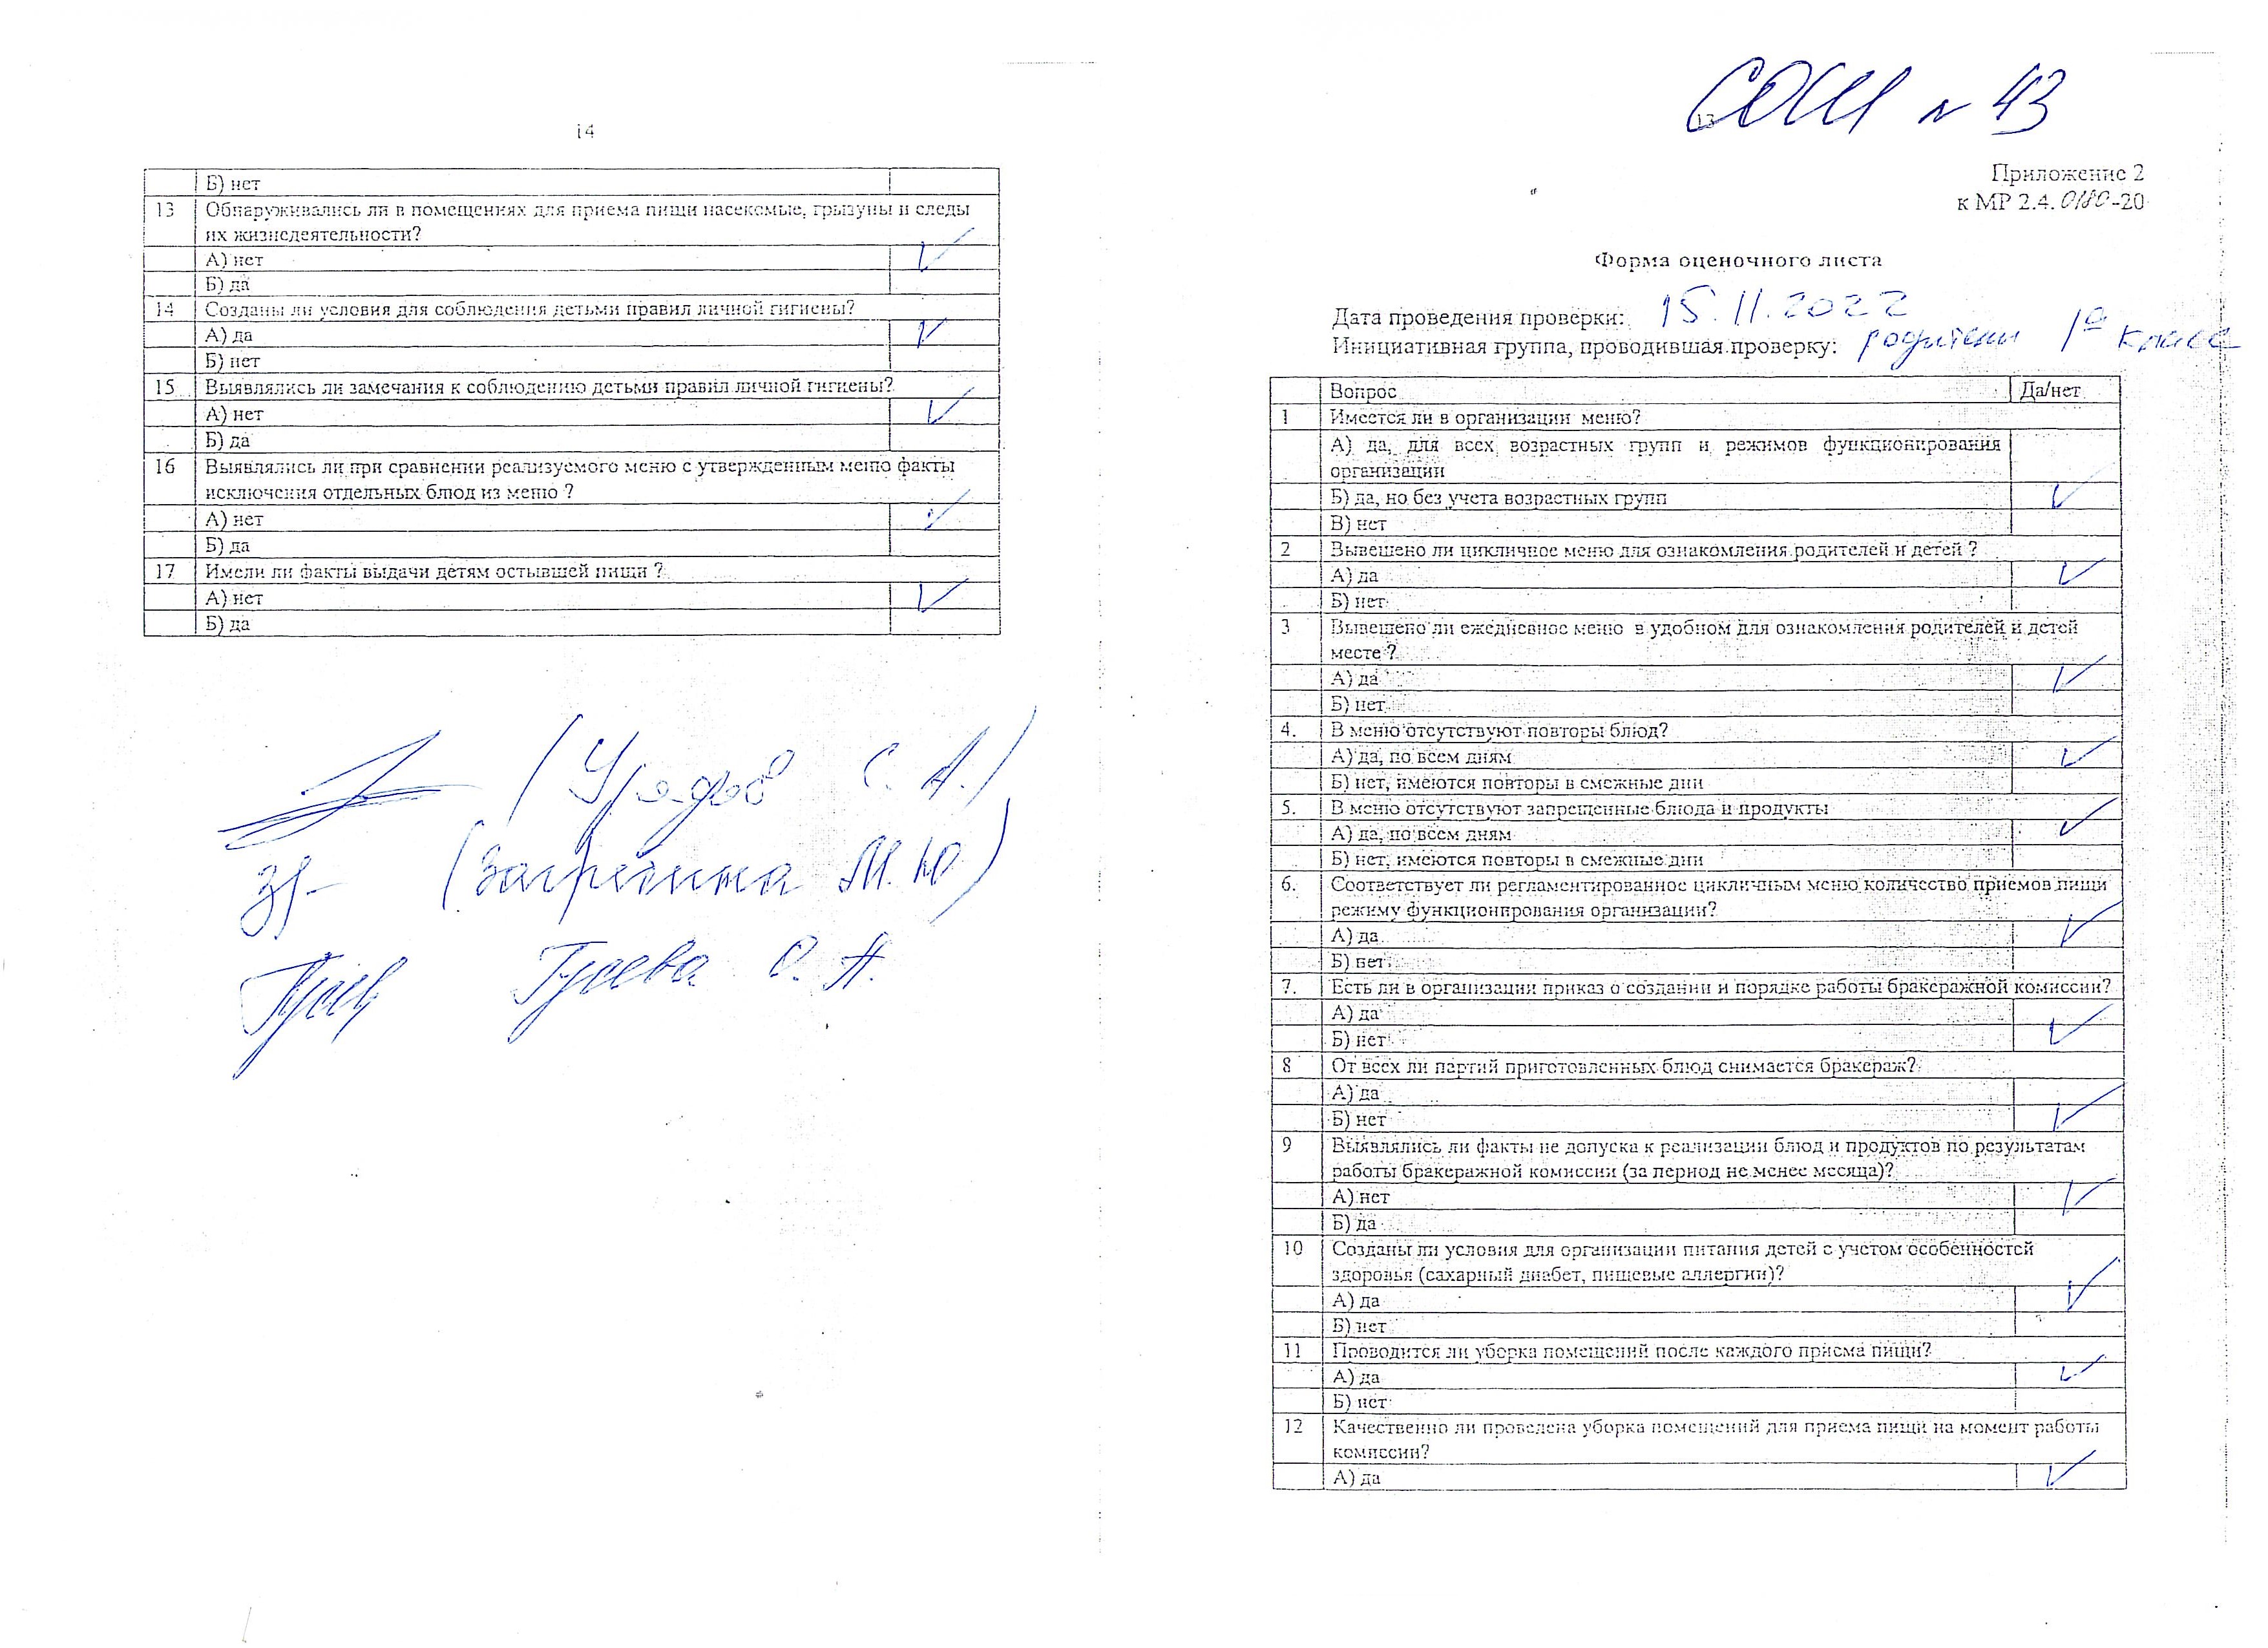 14
Б) нет
13 Обнаруживались ли в помещениях для приема пищи насекомые, грызуны и следы
их жизнедеятельности?
А) нет ✓
Б) да
14 Созданы ли условия для соблюдения детьми правил личной гигиены?
А) да ✓
Б) нет
15 Выявлялись ли замечания к соблюдению детьми правил личной гигиены?
А) нет ✓
Б) да
16 Выявлялись ли при сравнении реализуемого меню с утвержденным меню факты
исключения отдельных блюд из меню ?
А) нет ✓
Б) да
17 Имели ли факты выдачи детям остывшей пищи ?
А) нет ✓
Б) да
С. А.)
М. Ю)
С. А.
СОШ № 43
13
Приложение 2
к МР 2.4.0180-20
Форма оценочного листа
Дата проведения проверки: 15.11.2022
Инициативная группа, проводившая проверку: родители 1а класса
Вопрос Да/нет
1 Имеется ли в организации меню?
А) да, для всех возрастных групп и режимов функционирования
организации
Б) да, но без учета возрастных групп ✓
В) нет
2 Вывешено ли цикличное меню для ознакомления родителей и детей ?
А) да ✓
Б) нет
3 Вывешено ли ежедневное меню в удобном для ознакомления родителей и детей
месте ?
А) да ✓
Б) нет
4. В меню отсутствуют повторы блюд?
А) да, по всем дням ✓
Б) нет, имеются повторы в смежные дни
5. В меню отсутствуют запрещенные блюда и продукты
А) да, по всем дням ✓
Б) нет, имеются повторы в смежные дни
6. Соответствует ли регламентированное цикличным меню количество приемов пищи
режиму функционирования организации?
А) да ✓
Б) нет
7. Есть ли в организации приказ о создании и порядке работы бракеражной комиссии?
А) да
Б) нет ✓
8 От всех ли партий приготовленных блюд снимается бракераж?
А) да
Б) нет ✓
9 Выявлялись ли факты не допуска к реализации блюд и продуктов по результатам
работы бракеражной комиссии (за период не менее месяца)?
А) нет ✓
Б) да
10 Созданы ли условия для организации питания детей с учетом особенностей
здоровья (сахарный диабет, пищевые аллергии)?
А) да ✓
Б) нет
11 Проводится ли уборка помещений после каждого приема пищи?
А) да ✓
Б) нет
12 Качественно ли проведена уборка помещений для приема пищи на момент работы
комиссии?
А) да ✓